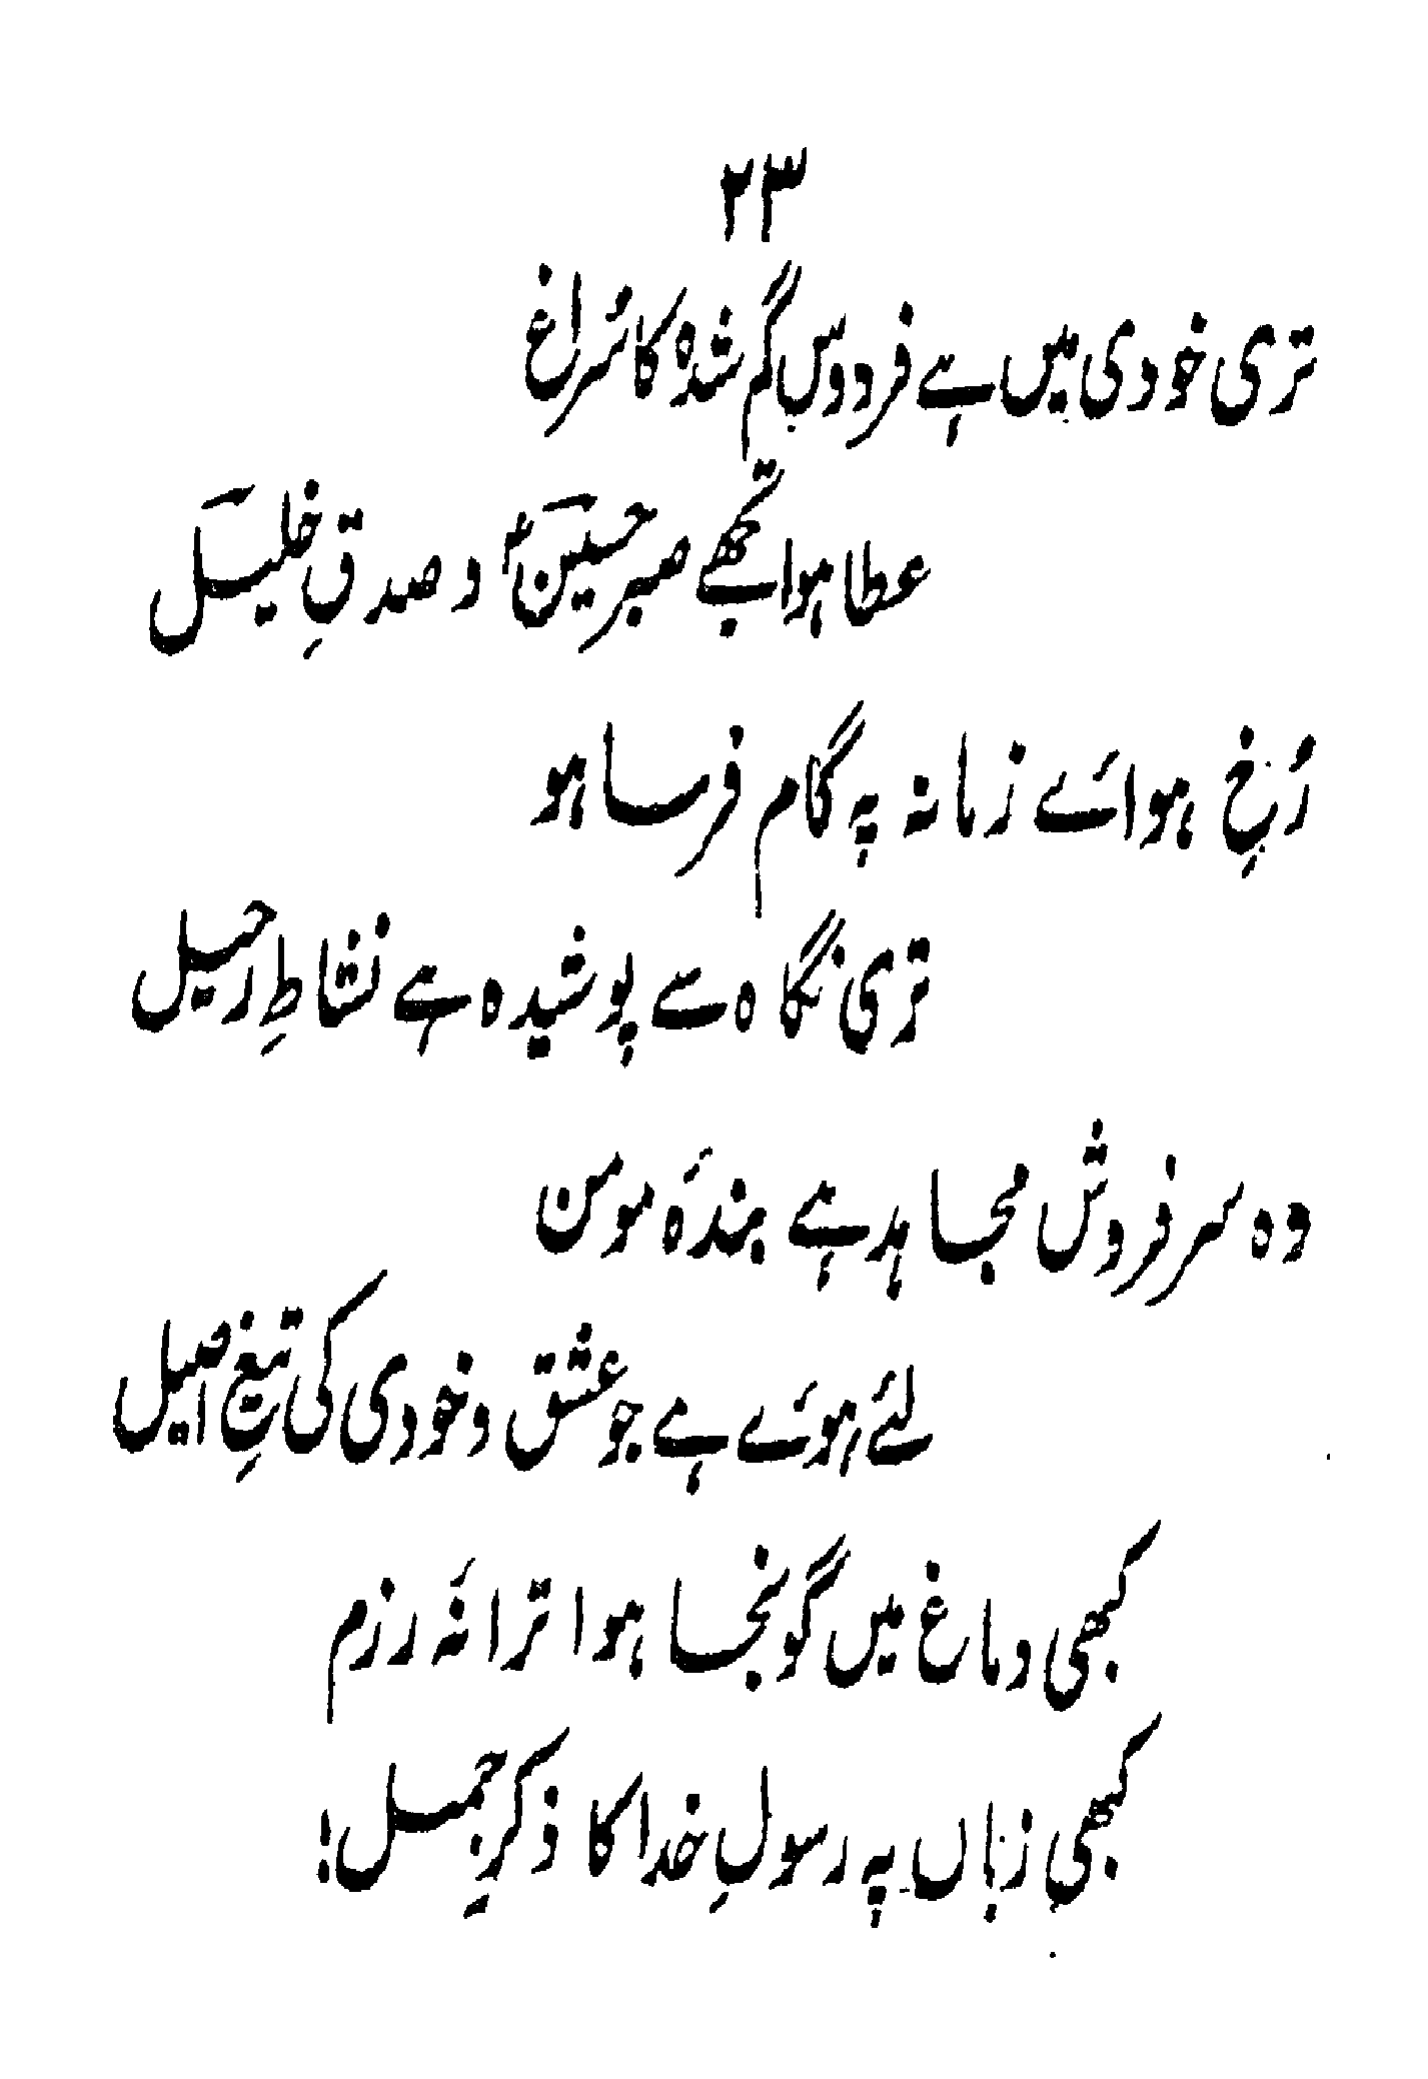 ۲۳
تری خودی میں ہے فردوسِ گم شدہ کا سُراغ
عطا ہوا تجھے صبرِ حسینؑ و صدقِ خلیل
رُخِ ہوائے زمانہ پہ گام فرسا ہو
تری نگاہ سے پوشیدہ ہے نشاطِ رحیل
وہ سرفروش مجاہد ہے بندۂ مومن
لئے ہوئے ہے جو عشق و خودی کی تیغِ اصیل
کبھی دماغ میں گونجا ہوا ترانۂ رزم
کبھی زباں پہ رسولِ خدا کا ذکرِ جمیل!